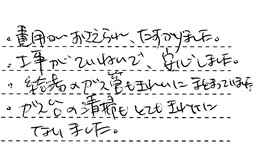 ・費用がおさえられ、たすかりました。
・工事がていねいで、安心しました。
・結局のガス管もきれいにまとまっていました
・ガス台の清掃もとてもきれいに
なりました。